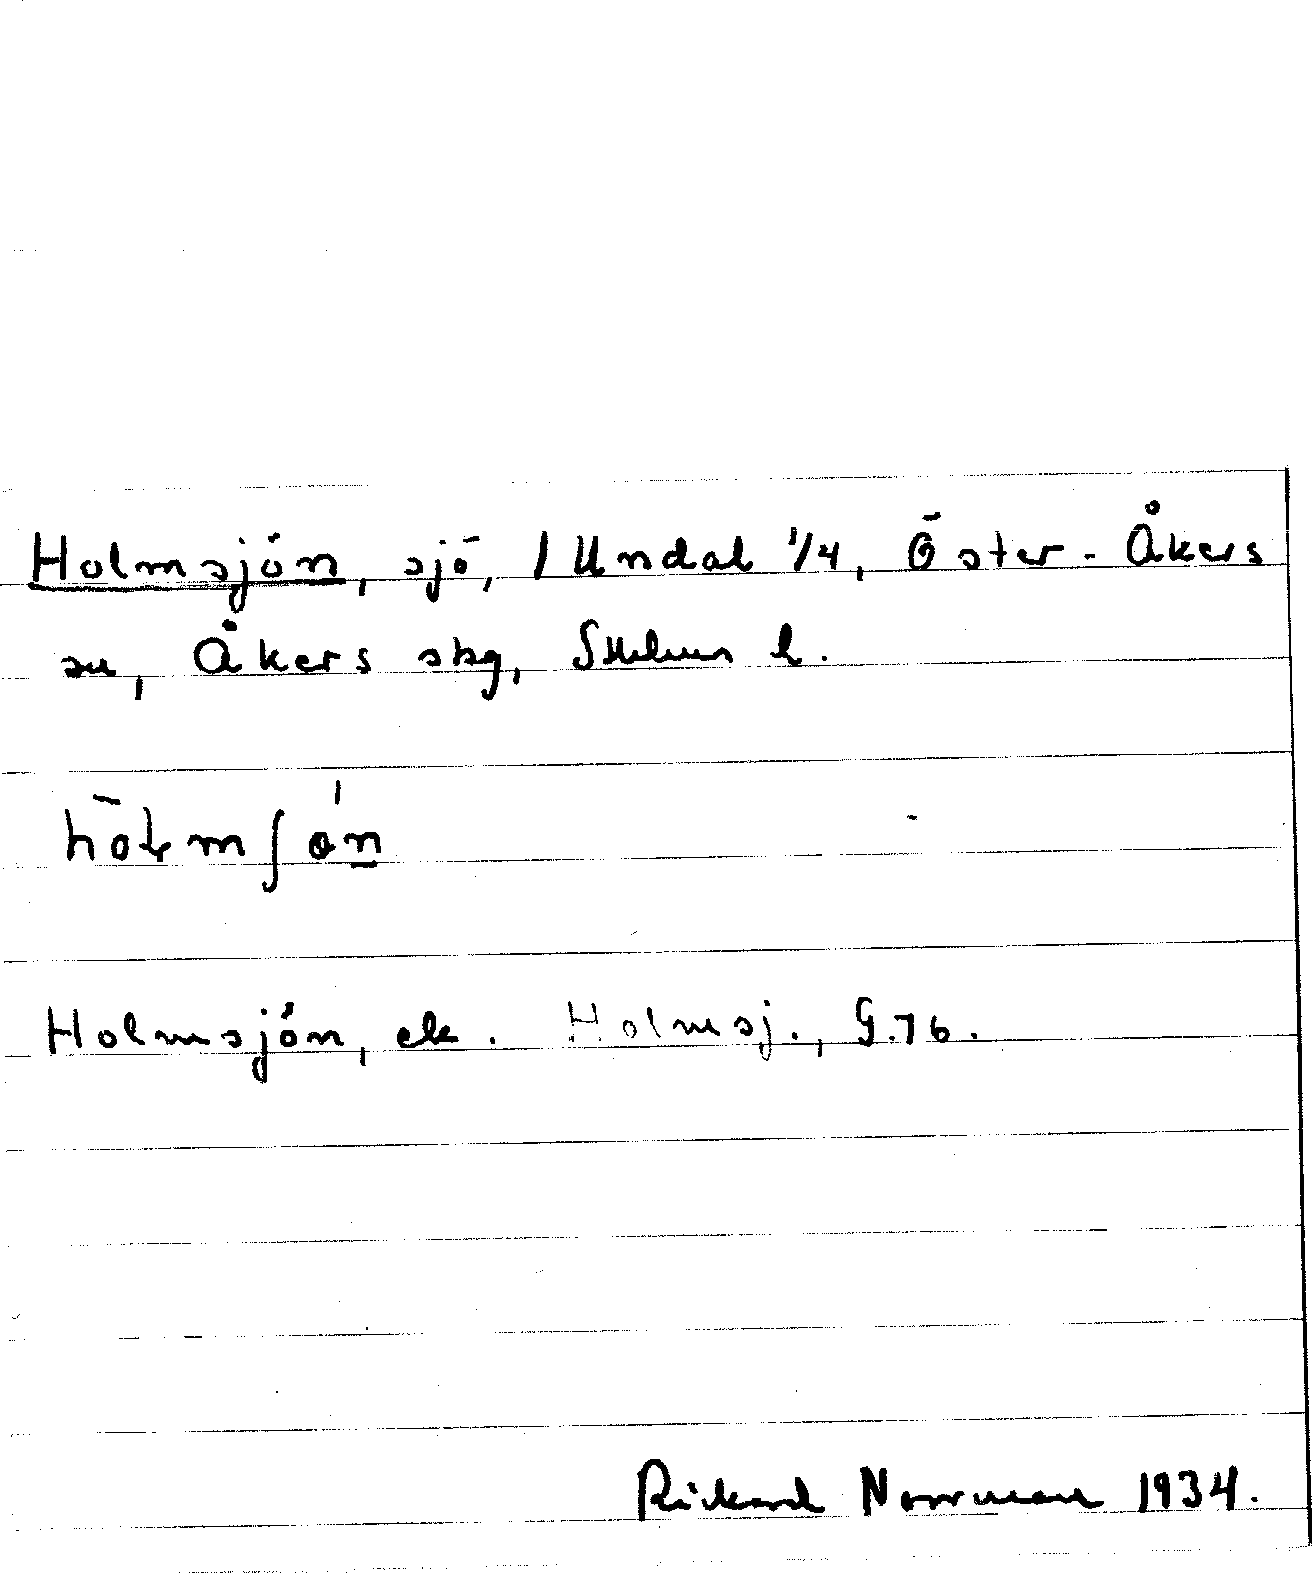 Holmsjön, sjö, 1 Undal ¼, Öster-Åkers
sn, Åkers skg, Sthlms l.
Holmsjön, ek. Holmsj., G.76.
Rickard Norrman 1934.